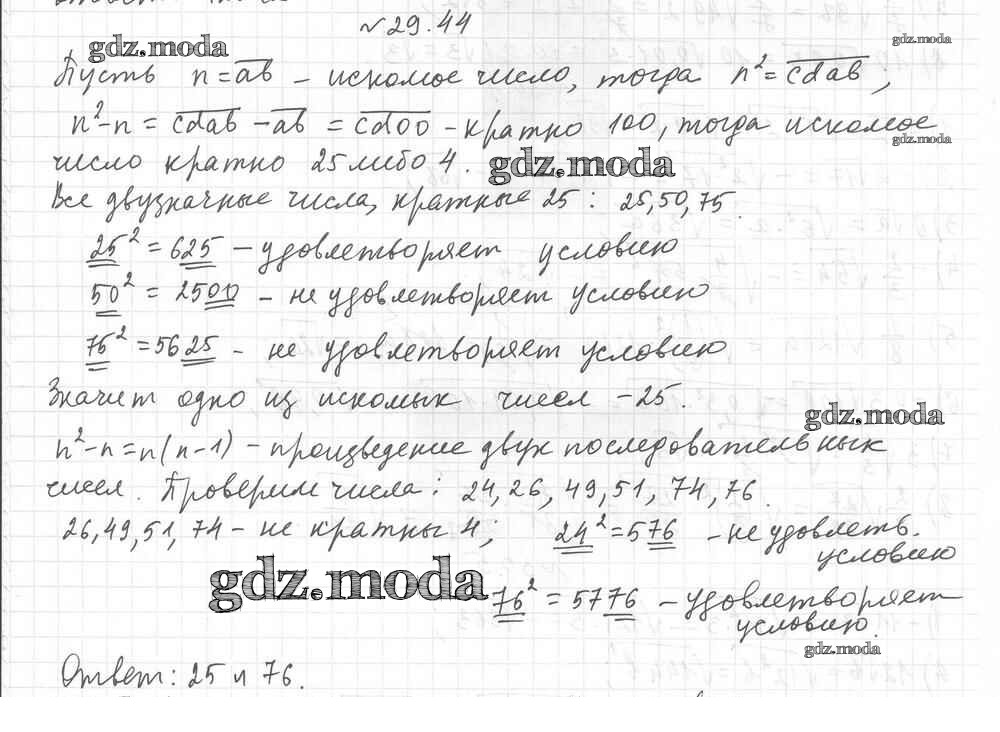 №29.44
gdz.moda
gdz.moda
Пусть n = ab – искомое число, тогда n² = cdab;
n²-n = cdab - ab = cd00 - кратно 100, тогда искомое
gdz.moda
число кратно 25 либо 4.
gdz.moda
Все двузначные числа, кратные 25: 25, 50, 75.
25² = 625 – удовлетворяет условию
50² = 2500 – не удовлетворяет условию
75² = 5625 – не удовлетворяет условию
Значит одно из искомых чисел – 25.
gdz.moda
n²-n = n(n-1) – произведение двух последовательных
чисел. Проверим числа: 24, 26, 49, 51, 74, 76.
26, 49, 51, 74 – не кратны 4; 24² = 576 – не удовлетв.
условию
gdz.moda
76² = 5776 – удовлетворяет
условию.
gdz.moda
Ответ: 25 и 76.